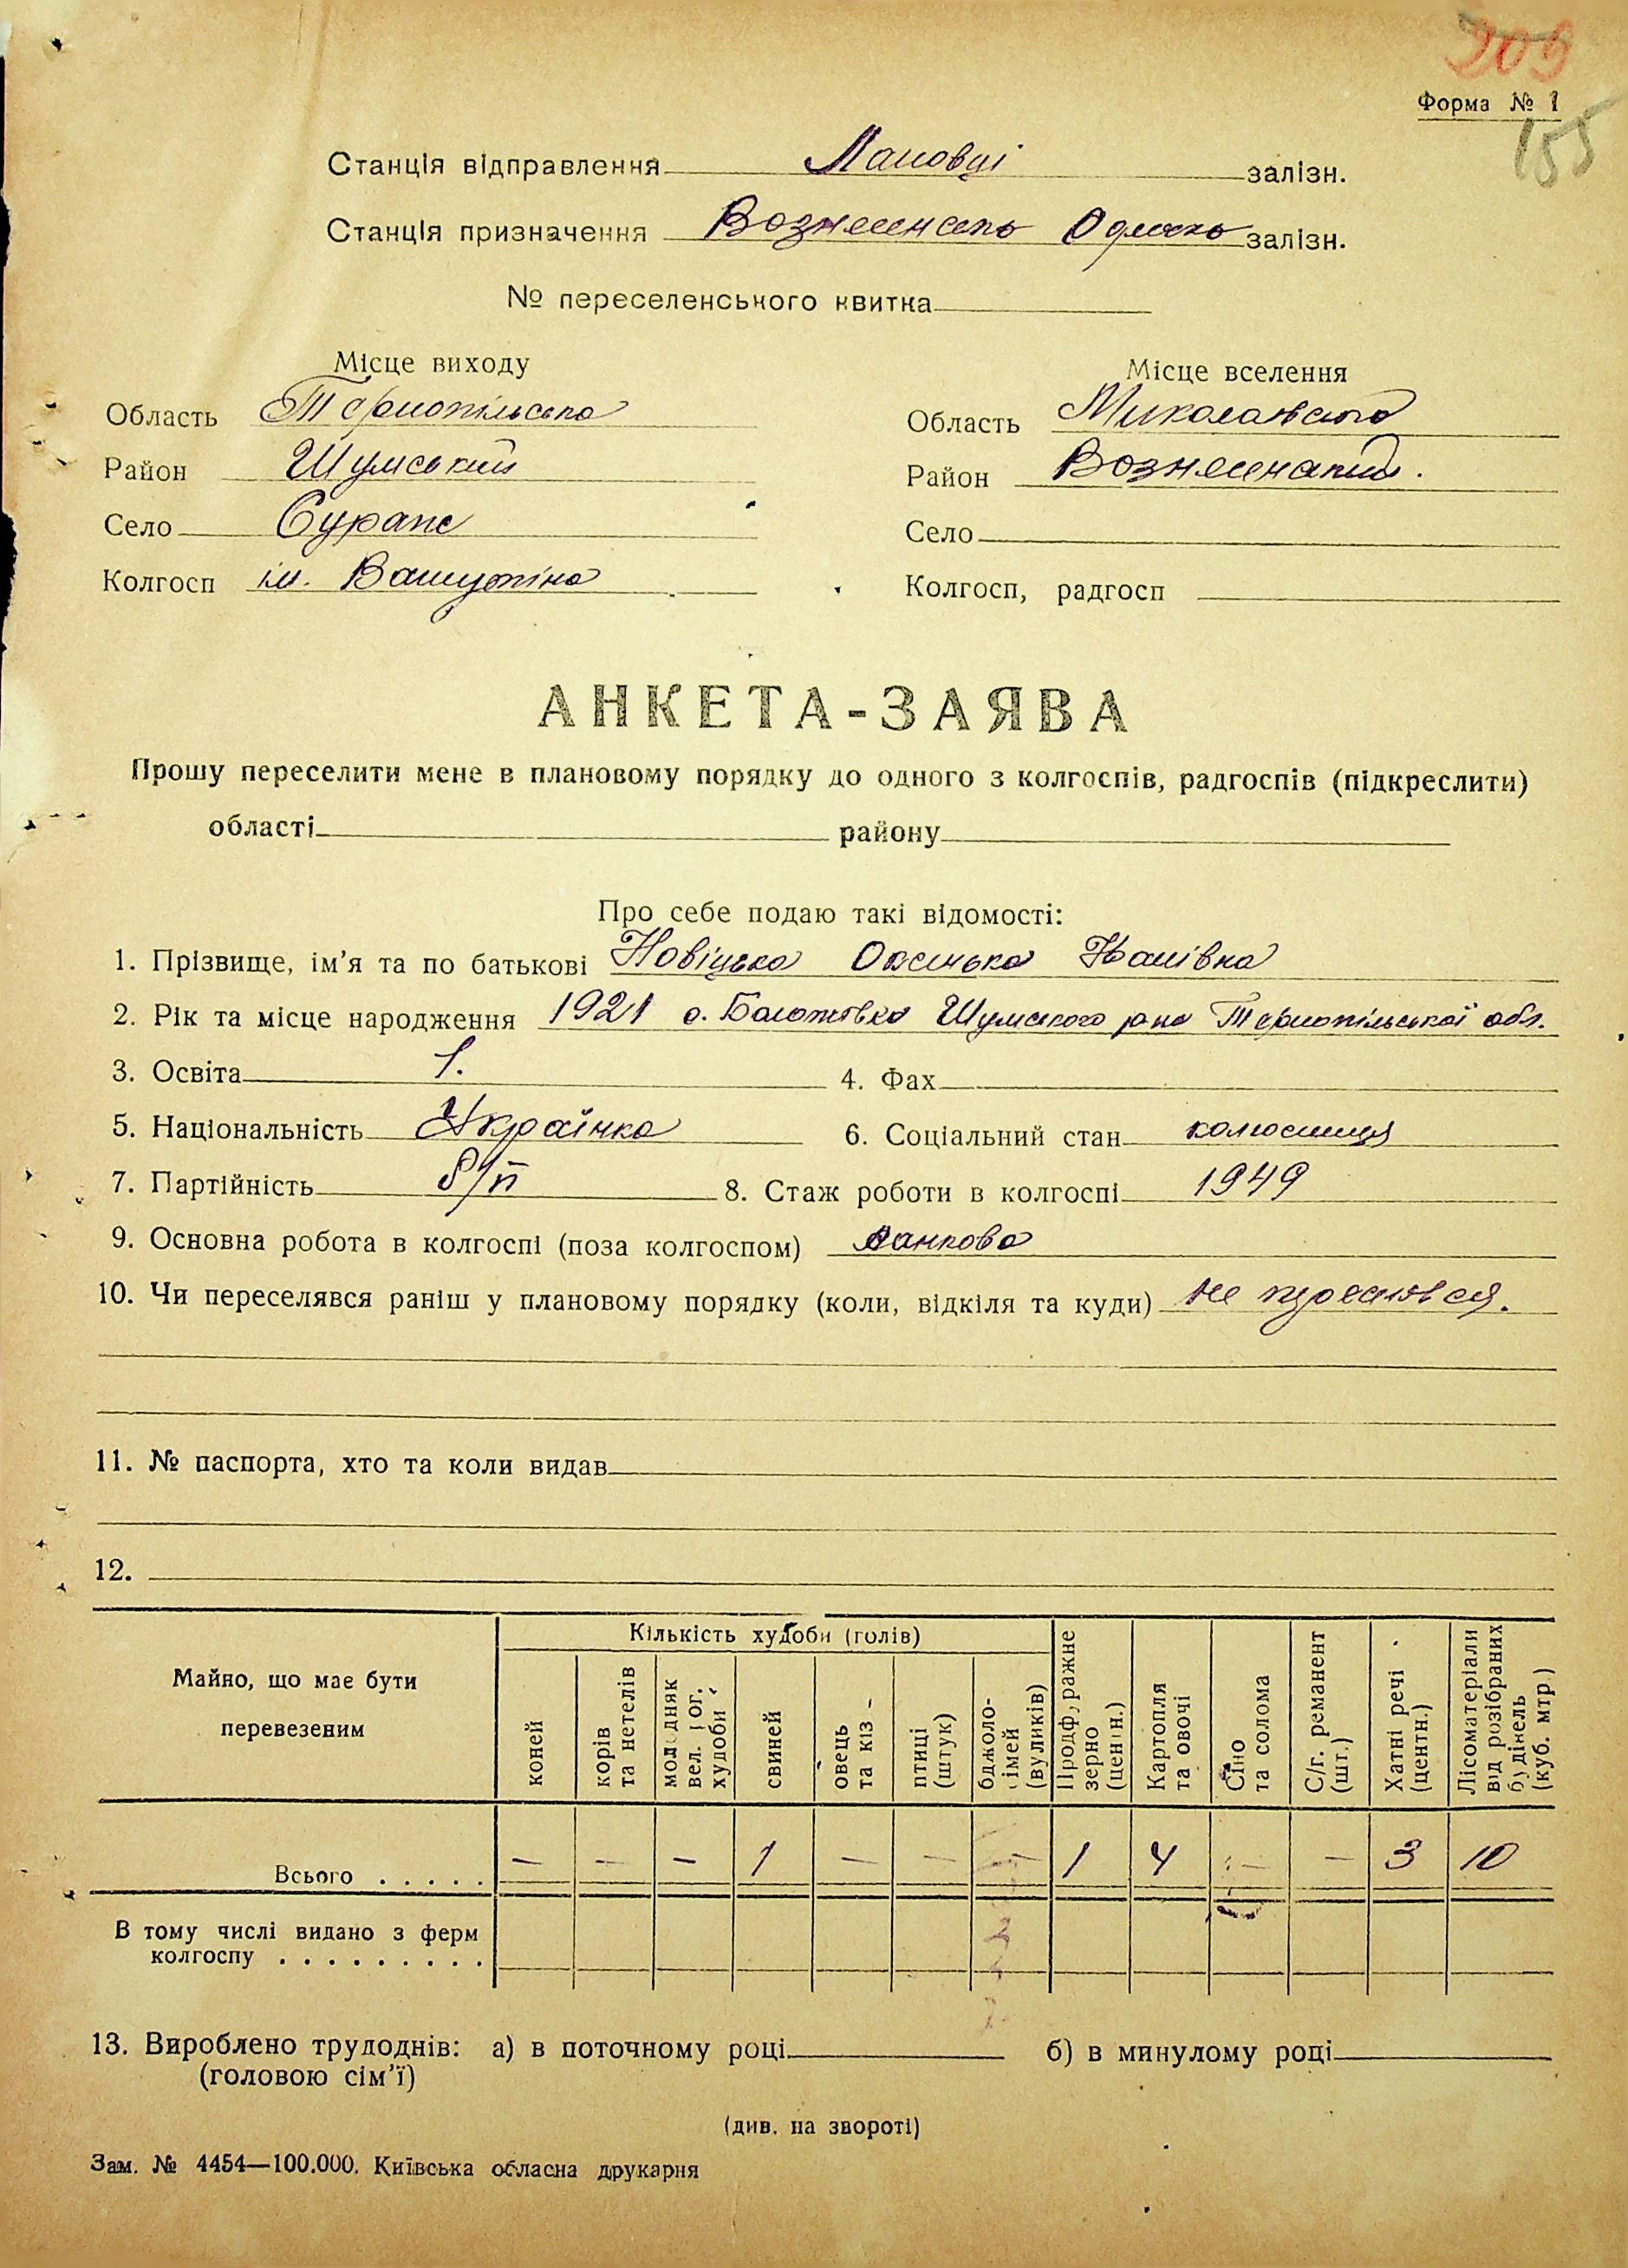 209
Форма № 1
155
Станція відправлення Лановці залізн.
Станція призначення Вознесенськ Одеська залізн.
№ переселенського квитка
Місце виходу
Місце вселення
Область Тернопільська
Область Миколаївська
Район Шумський
Район Вознесенський.
Село Сураж
Село
Колгосп ім. Ватутіна
Колгосп, радгосп
АНКЕТА-ЗАЯВА
Прошу переселити мене в плановому порядку до одного з колгоспів, радгоспів (підкреслити)
області району
Про себе подаю такі відомості:
1. Прізвище, ім'я та по батькові Новіцька Оксенька Іванівна
2. Рік та місце народження 1921 с. Болотківка Шумського р-на Тернопільської обл.
3. Освіта 1. 4. Фах
5. Національність Українка 6. Соціальний стан колгоспниця
7. Партійність б/п 8. Стаж роботи в колгоспі 1949
9. Основна робота в колгоспі (поза колгоспом) ланкова
10. Чи переселявся раніш у плановому порядку (коли, відкіля та куди) не
11. № паспорта, хто та коли видав
12.
Майно, що має бути перевезеним
Кількість худоби (голів)
коней
корів та нетелів
молодняк вел. рог. худоби
свиней
овець та кіз
птиці (штук)
бджолосімей (вуликів)
Продфуражне зерно (центн.)
Картопля та овочі
Сіно та солома
С/г. реманент (шт.)
Хатні речі (центн.)
Лісоматеріали від розібраних будівель (куб. мтр.)
Всього . . . . . — — — 1 — — — 1 4 — — 3 10
В тому числі видано з ферм
колгоспу . . . . . . . . .
13. Вироблено трудоднів: а) в поточному році б) в минулому році
(головою сім'ї)
(див. на звороті)
Зам. № 4454—100.000. Київська обласна друкарня